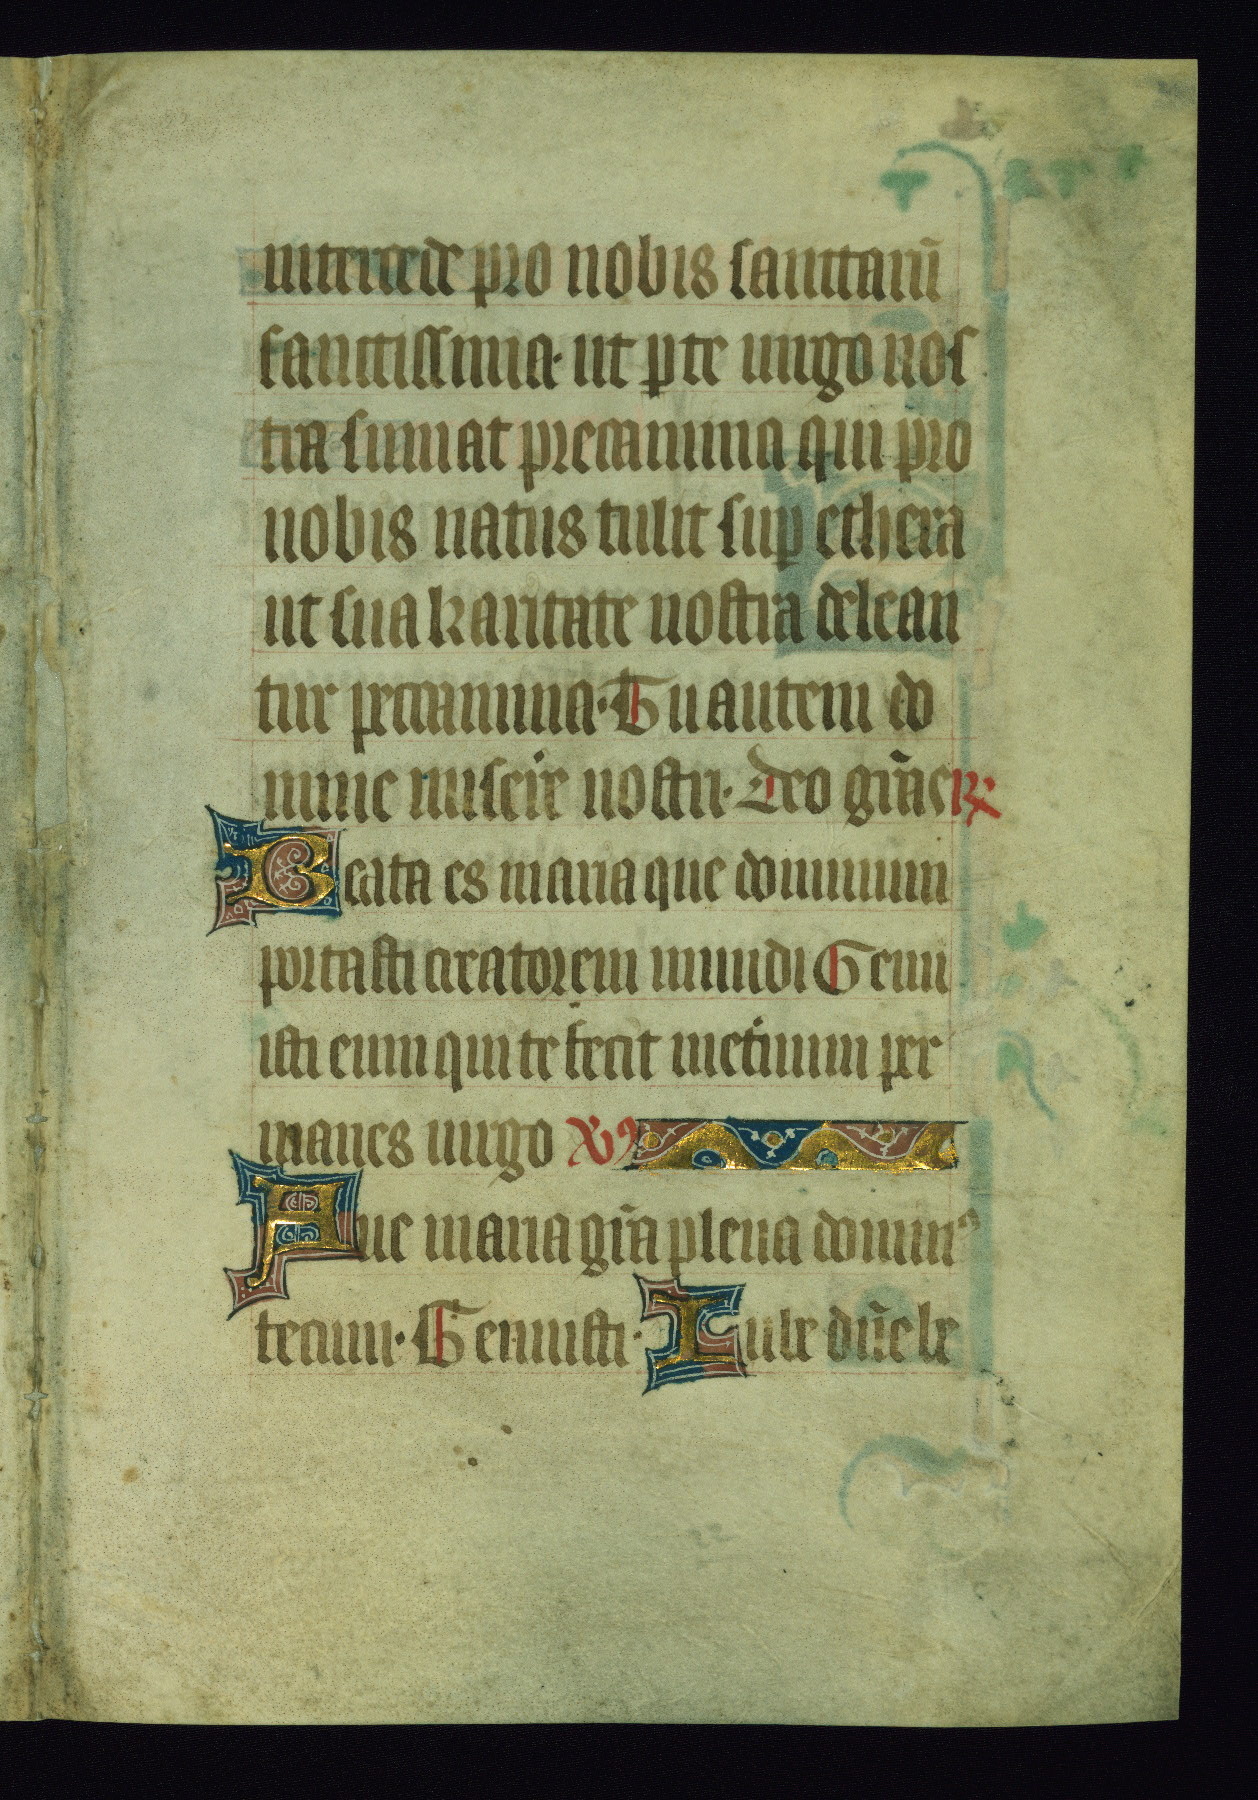 intercede pro nobis sanctarū
sanctissima· ut p te uirgo nos
tra sumat precamina qui pro
nobis natus tulit sup ethera
ut sua karitate nostra delean
tur peccamina· Tu autem do
mine miserẽ nostri· Deo gr̃as ℟
Beata es maria que dominum
portasti creatorem mundi Genu
isti eum qui te fecit inet̾num per
manes uirgo V̾
Aue maria gr̃a plena domin᾿
tecum· Genuisti· Iube dñe be